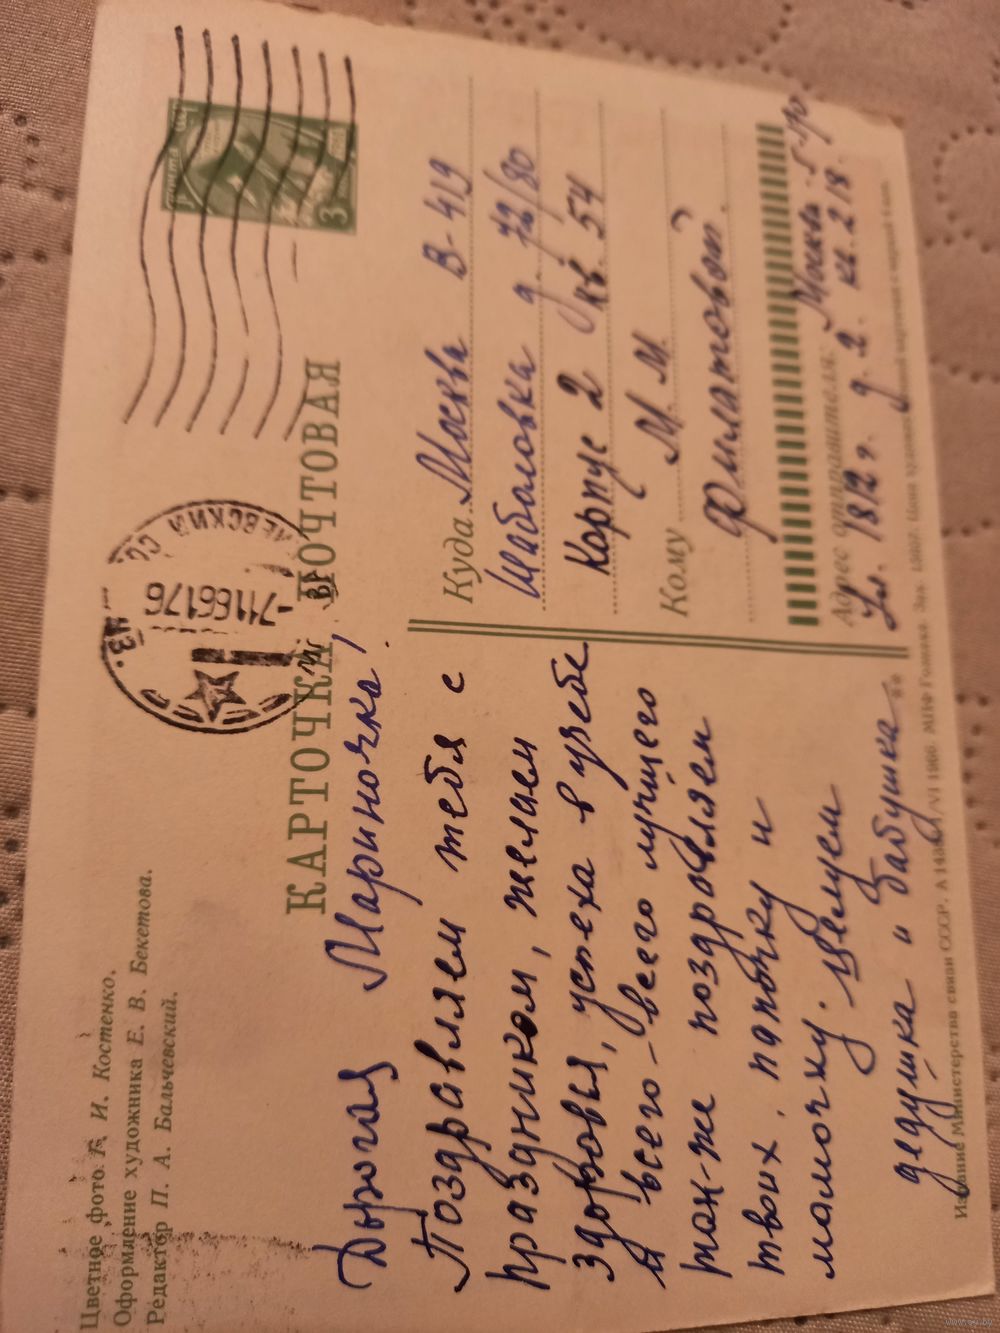 Цветное фото И. Костенко.
Оформление художника Е. В. Бекетова.
Редактор П. А. Бальчевский.
КАРТОЧКА ПОЧТОВАЯ
-71166176
3
Дорогая Мариночка!
Поздравляем тебя с
праздником, желаем
здоровья, успеха в учебе
и всего-всего лучшего
так-же поздровляем
твоих папочку и
мамочку. Целуем
дедушка и бабушка.
Куда Москва В-419
Шаболовка д. 72/80
Корпус 2 кв. 54
Кому М. М.
Филатовой.
Адрес отправителя: Москва
Ул. 1812 г. д. 2. кв. 218.
Издание Министерства связи СССР. 1966. МПФ Гознака. Зак.